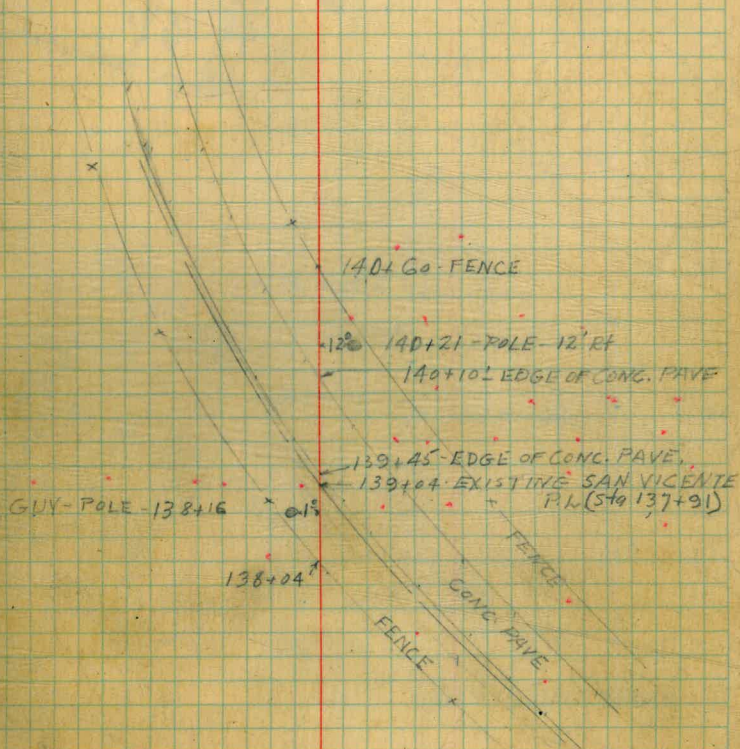 140+60-FENCE
12° 140+21-POLE-12' Rt
140+10'- EDGE OF CONC. PAVE
139+45-EDGE OF CONC. PAVE.
139+04-EXISTING SAN VICENTE
P.L (Sta 137+91)
GUY-POLE-138+16
138+04
FENCE
CONC PAVE
FENCE